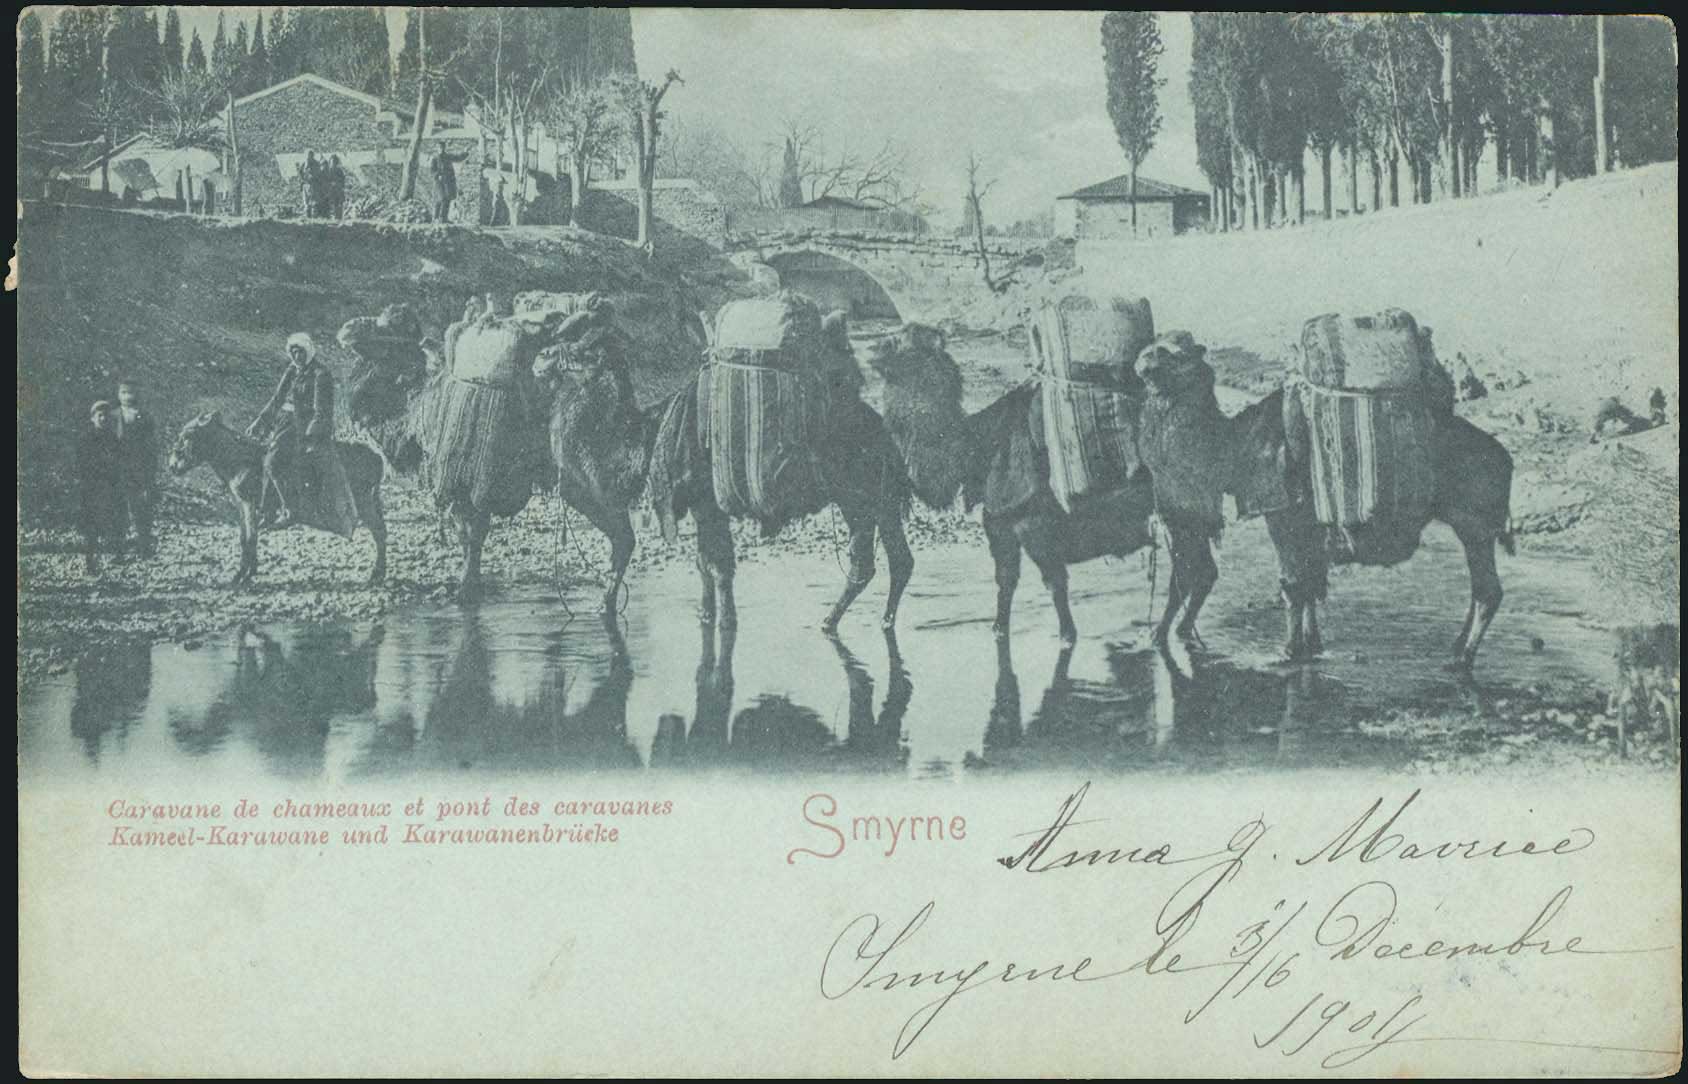 Caravane de chameaux et pont des caravanes
Kameel-Karawane und Karawanenbrücke
Smyrne
Anna J. Mavrice
Smyrne le 3/16 Décembre
1901